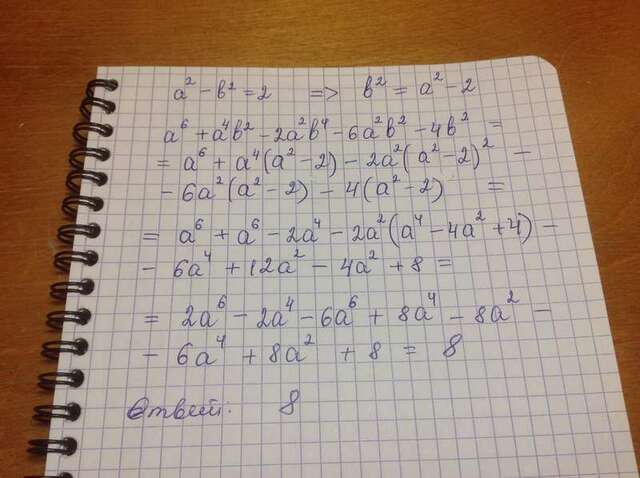 a² - b² = 2 => b² = a² - 2
a⁶ + a⁴b² - 2a²b⁴ - 6a²b² - 4b² =
= a⁶ + a⁴(a² - 2) - 2a²(a² - 2)² -
- 6a²(a² - 2) - 4(a² - 2) =
= a⁶ + a⁶ - 2a⁴ - 2a²(a⁴ - 4a² + 4) -
- 6a⁴ + 12a² - 4a² + 8 =
= 2a⁶ - 2a⁴ - 6a⁶ + 8a⁴ - 8a² -
- 6a⁴ + 8a² + 8 = 8
Ответ: 8